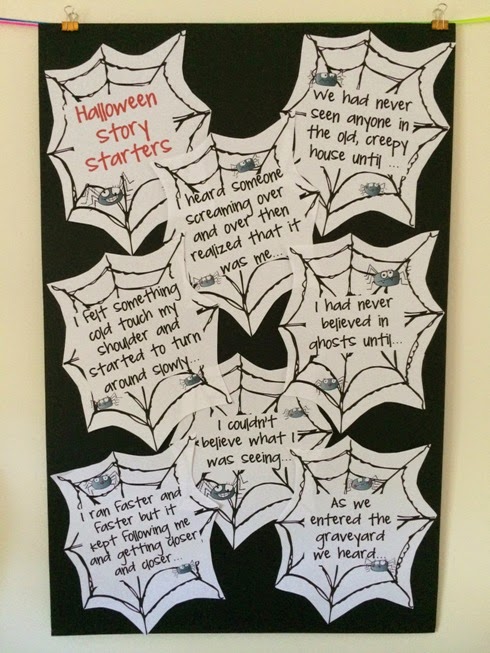 Halloween
Story
Starters
We had never
seen anyone in
the old, creepy
house until ...
I heard someone
screaming over
and over then
realized that it
was me...
I felt something
cold touch my
shoulder and
started to turn
around slowly...
I had never
believed in
ghosts until...
I couldn't
believe what I
was seeing...
I ran faster and
faster but it
kept following me
and getting closer
and closer...
As we
entered the
graveyard
we heard...